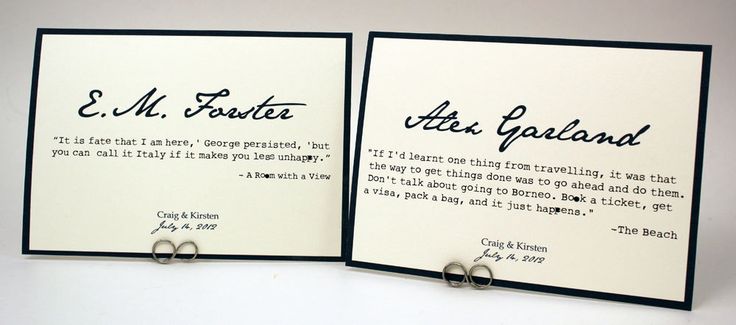 E. M. Forster
“It is fate that I am here,' George persisted, 'but
you can call it Italy if it makes you less unhappy.”
- A Room with a View
Craig & Kirsten
July 14, 2012
Alex Garland
"If I'd learnt one thing from travelling, it was that
the way to get things done was to go ahead and do them.
Don't talk about going to Borneo. Book a ticket, get
a visa, pack a bag, and it just happens."
-The Beach
Craig & Kirsten
July 14, 2012